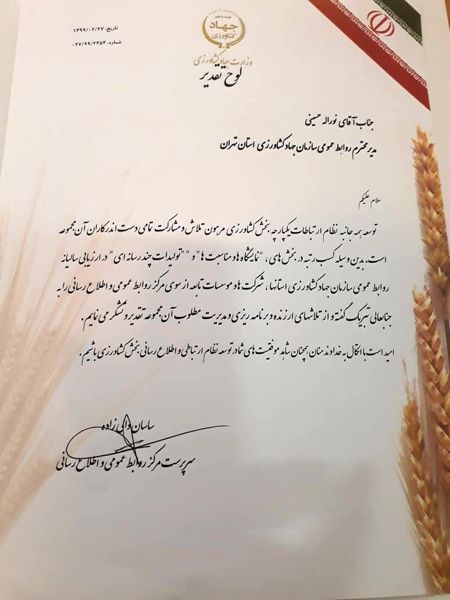 تاریخ: ۱۳۹۹/۰۲/۲۷
شماره: ۲۷/۹۹/۲۳۵۲
جهاد
کشاورزی
وزارت جهاد کشاورزی
لوح تقدیر
جناب آقای نوراله حسینی
مدیر محترم روابط عمومی سازمان جهاد کشاورزی استان تهران
سلام علیکم
توسعه همه جانبه نظام ارتباطات یکپارچه بخش کشاورزی مرهون تلاش و مشارکت تمامی دست اندرکاران آن مجموعه
است. بدین وسیله کسب رتبه در بخش های، "نمایشگاه ها و مناسبت ها" و "تولیدات چند رسانه ای" در ارزیابی سالیانه
روابط عمومی سازمان جهاد کشاورزی استانها، شرکت ها و موسسات تابعه از سوی مرکز روابط عمومی و اطلاع رسانی را به
جنابعالی تبریک گفته و از تلاشهای ارزنده و برنامه ریزی و مدیریت مطلوب آن مجموعه تقدیر و تشکر می نمایم.
امید است با اتکال به خداوند منان همچنان شاهد موفقیت های شما در توسعه نظام ارتباطی و اطلاع رسانی بخش کشاورزی باشیم.
ساسان والی زاده
سرپرست مرکز روابط عمومی و اطلاع رسانی